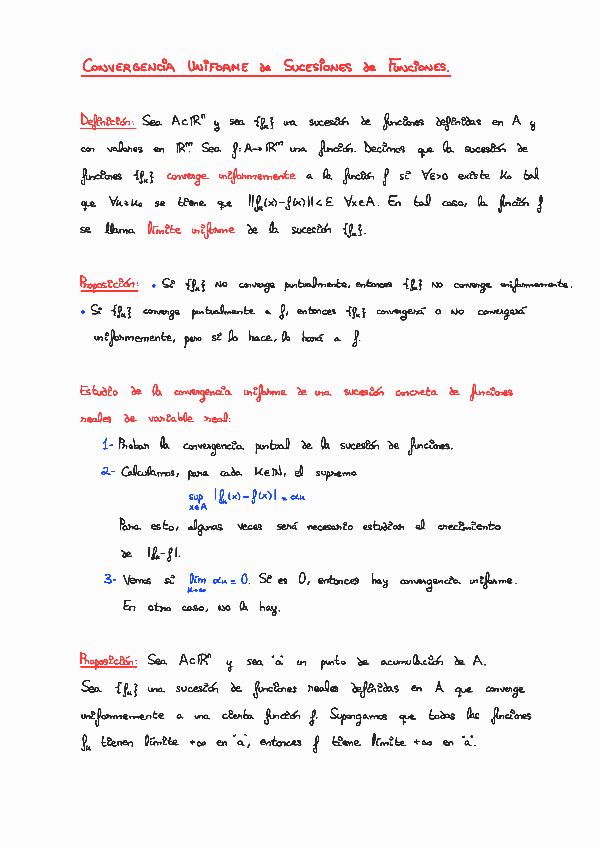 CONVERGENCIA UNIFORME de SUCESIONES de FUNCIONES.
Definición: Sea A⊂ℝⁿ y sea {fₖ} una sucesión de funciones definidas en A y
con valores en ℝᵐ. Sea f: A→ℝᵐ una función. Decimos que la sucesión de
funciones {fₖ} converge uniformemente a la función f si ∀ε>0 existe k₀ tal
que ∀k≥k₀ se tiene que ||fₖ(x)-f(x)||<ε ∀x∈A. En tal caso, la función f
se llama límite uniforme de la sucesión {fₖ}.
Proposición: • Si {fₖ} NO converge puntualmente, entonces {fₖ} NO converge uniformemente.
• Si {fₖ} converge puntualmente a f, entonces {fₖ} convergerá o NO convergerá
uniformemente, pero si lo hace, lo hará a f.
Estudio de la convergencia uniforme de una sucesión concreta de funciones
reales de variable real:
1- Probar la convergencia puntual de la sucesión de funciones.
2- Calculamos, para cada k∈ℕ, el supremo
sup |fₖ(x)-f(x)| = αₖ
x∈A
Para esto, algunas veces será necesario estudiar el crecimiento
de |fₖ-f|.
3- Vemos si lím αₖ = 0. Si es 0, entonces hay convergencia uniforme.
k→∞
En otro caso, no la hay.
Proposición: Sea A⊂ℝⁿ y sea "a" un punto de acumulación de A.
Sea {fₖ} una sucesión de funciones reales definidas en A que converge
uniformemente a una cierta función f. Supongamos que todas las funciones
fₖ tienen límite +∞ en "a", entonces f tiene límite +∞ en "a".